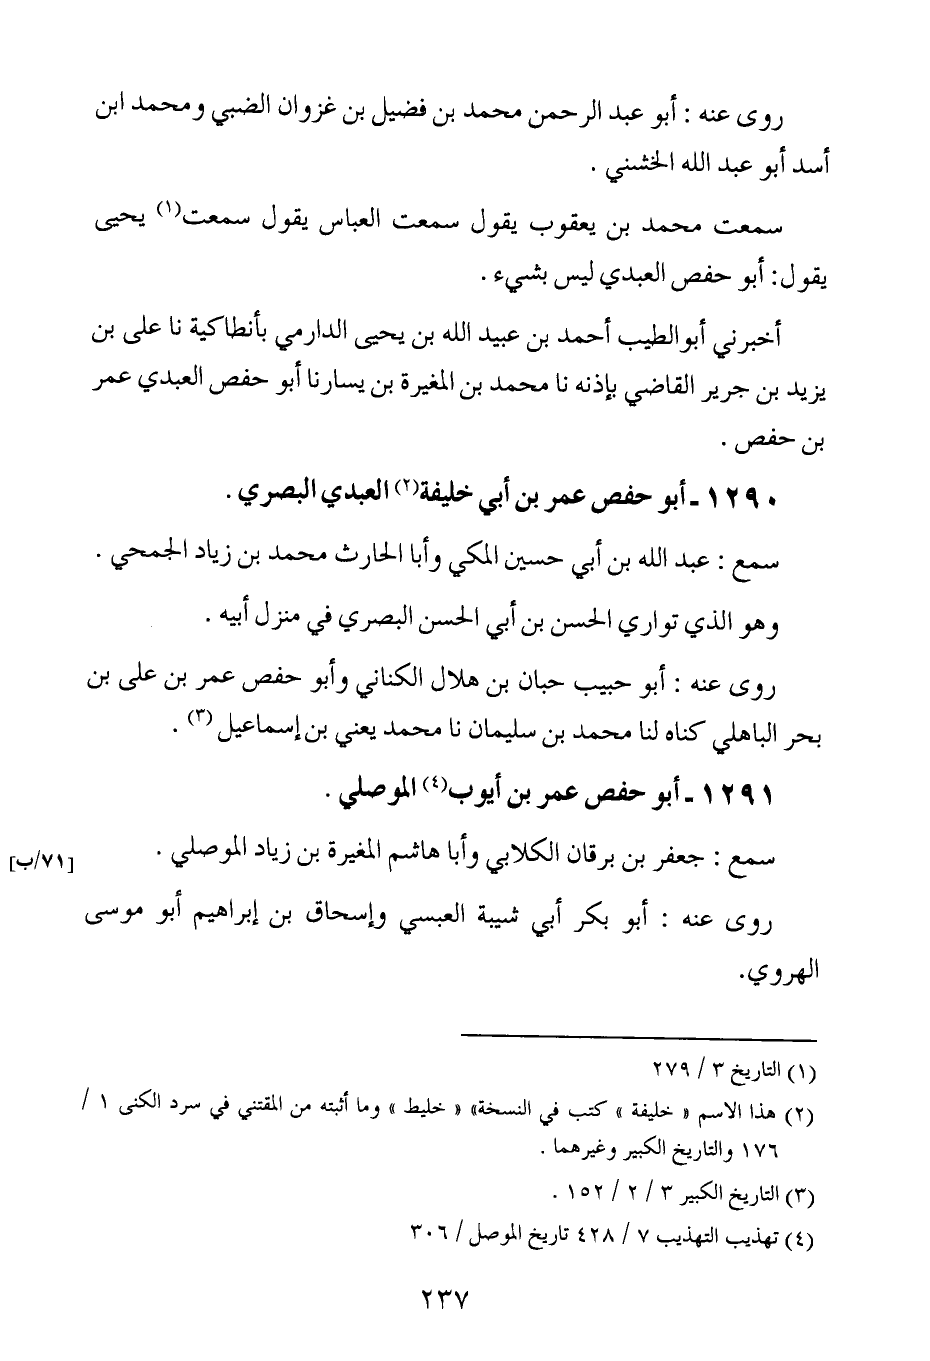 روى عنه : أبو عبد الرحمن محمد بن فضيل بن غزوان الضبي ومحمد ابن
أسد أبو عبد الله الخشني .
سمعت محمد بن يعقوب يقول سمعت العباس يقول سمعت(١) يحيى
يقول: أبو حفص العبدي ليس بشيء .
أخبرني أبوالطيب أحمد بن عبيد الله بن يحيى الدارمي بأنطاكية نا على بن
يزيد بن جرير القاضي بإذنه نا محمد بن المغيرة بن يسارنا أبو حفص العبدي عمر
بن حفص .
١٢٩٠ ـ أبو حفص عمر بن أبي خليفة(٢) العبدي البصري .
سمع : عبد الله بن أبي حسين المكي وأبا الحارث محمد بن زياد الجمحي .
وهو الذي تواري الحسن بن أبي الحسن البصري في منزل أبيه .
روى عنه : أبو حبيب حبان بن هلال الكناني وأبو حفص عمر بن على بن
بحر الباهلي كناه لنا محمد بن سليمان نا محمد يعني بن إسماعيل (٣) .
١٢٩١ ـ أبو حفص عمر بن أيوب(٤) الموصلي .
سمع : جعفر بن برقان الكلابي وأبا هاشم المغيرة بن زياد الموصلي .
[٧١/ب]
روى عنه : أبو بكر أبي شيبة العبسي وإسحاق بن إبراهيم أبو موسى
الهروي.
(١) التاريخ ٣ / ٢٧٩
(٢) هذا الاسم « خليفة » كتب في النسخة» « خليط » وما أثبته من المقتني في سرد الكنى ١ /
١٧٦ والتاريخ الكبير وغيرهما .
(٣) التاريخ الكبير ٣ / ٢ / ١٥٢ .
(٤) تهذيب التهذيب ٧ / ٤٢٨ تاريخ الموصل / ٣٠٦
٢٣٧